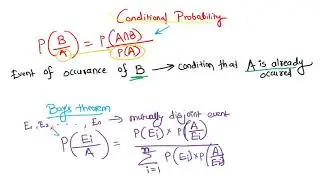 Conditional Probability
P(B/A) = P(A∩B)/P(A)
Event of occurance of B → condition that A is already
occured
Baye's theorem
E₁, E₂, ........, En → mutually disjoint event
P(Ei/A) = P(Ei) x P(A/Ei)
n
Σ P(Ei) x P(A/Ei)
i=1